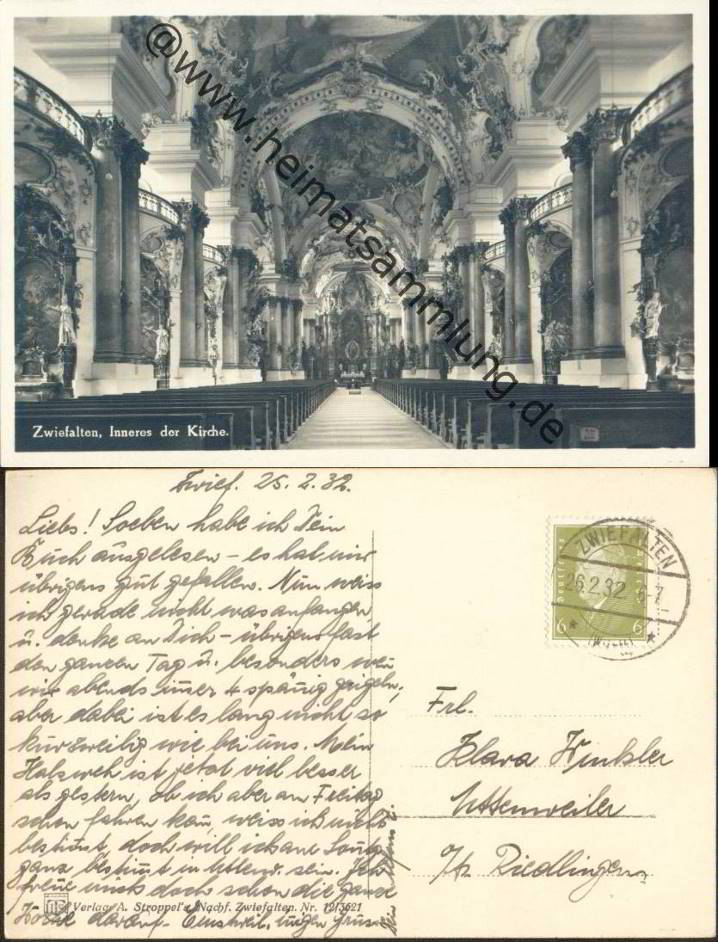 @www.heimatsammlung.de
Zwiefalten, Inneres der Kirche.
Zwief. 25.2.32.
Liebs! Soeben habe ich Dein
Buch ausgelesen - es hat mir
übrigens gut gefallen. Nun weiss
ich gerade nicht was anfangen
u. denke an Dich - übrigens fast
den ganzen Tag u. besonders wenn
wir abends immer 4 spännig geigeln,
aber dabei ist es lang nicht so
kurzweilig wie bei uns. Mein
Halsweh ist jetzt viel besser
als gestern, ob ich aber am Freitag
schon fahren kann, weiss ich nicht
bestimmt, doch will ich am Sonntag
ganz bestimmt in Uttenw. sein. Ich
freue mich doch schon die ganze
Woche darauf. Einstweil. innigen Gruss
Verlag A. Stroppel's Nachf. Zwiefalten. Nr. 12/3621
ZWIEFALTEN
26.2.32 6-7
6 6
Frl.
Klara Winkler
Uttenweiler
Riedlingen